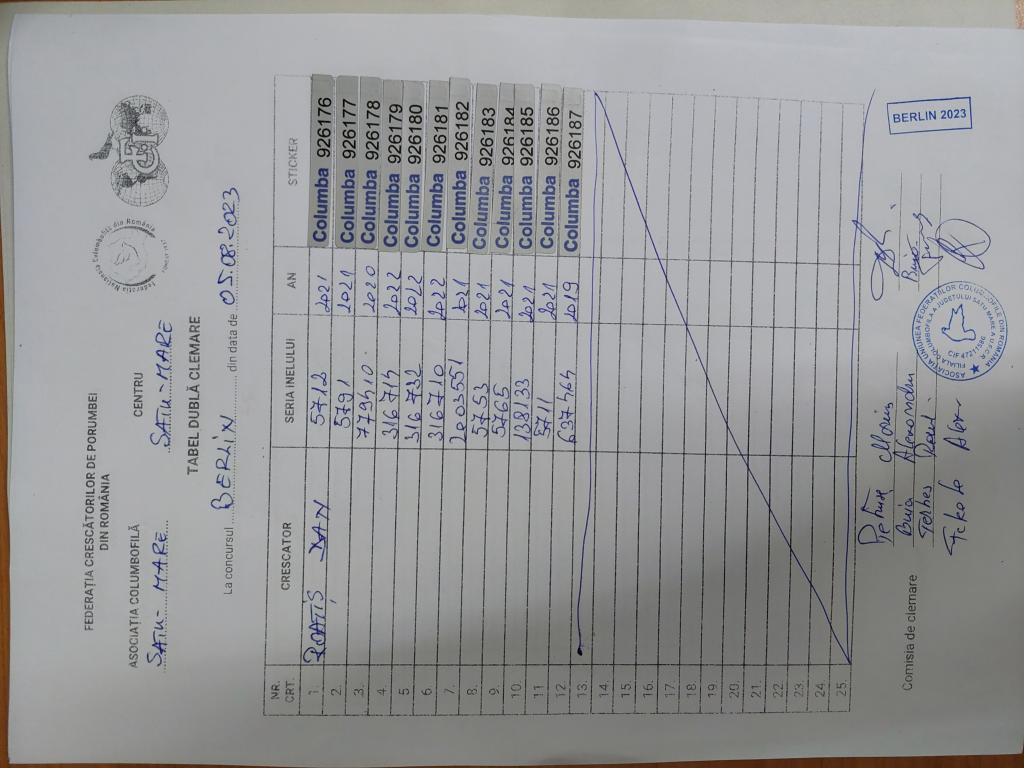 FEDERAȚIA CRESCĂTORILOR DE PORUMBEI
DIN ROMÂNIA
Federația Națională Columbofilă din România
FCI
ASOCIAȚIA COLUMBOFILĂ CENTRU
SATU-MARE SATU-MARE
TABEL DUBLĂ CLEMARE
La concursul BERLIN din data de 05.08.2023
NR. CRT. CRESCATOR SERIA INELULUI AN STICKER
1. DAN 5712 2021 Columba 926176
2. 5791 2021 Columba 926177
3. 779410 2020 Columba 926178
4. 316714 2022 Columba 926179
5 316732 2022 Columba 926180
6. 316710 2022 Columba 926181
7. 2203551 2021 Columba 926182
8. 5753 2021 Columba 926183
9. 5765 2021 Columba 926184
10. 138133 2021 Columba 926185
11 5711 2021 Columba 926186
12. 637464 2019 Columba 926187
13.
14.
15.
16.
17.
18.
19.
20.
21.
22.
23.
24.
25.
Comisia de clemare
Buia
BERLIN 2023
ASOCIAȚIA UNIUNEA FEDERAȚIILOR COLUMBOFILE DIN ROMÂNIA
FILIALA COLUMBOFILĂ A JUDEȚULUI SATU MARE A U.F.C.R.